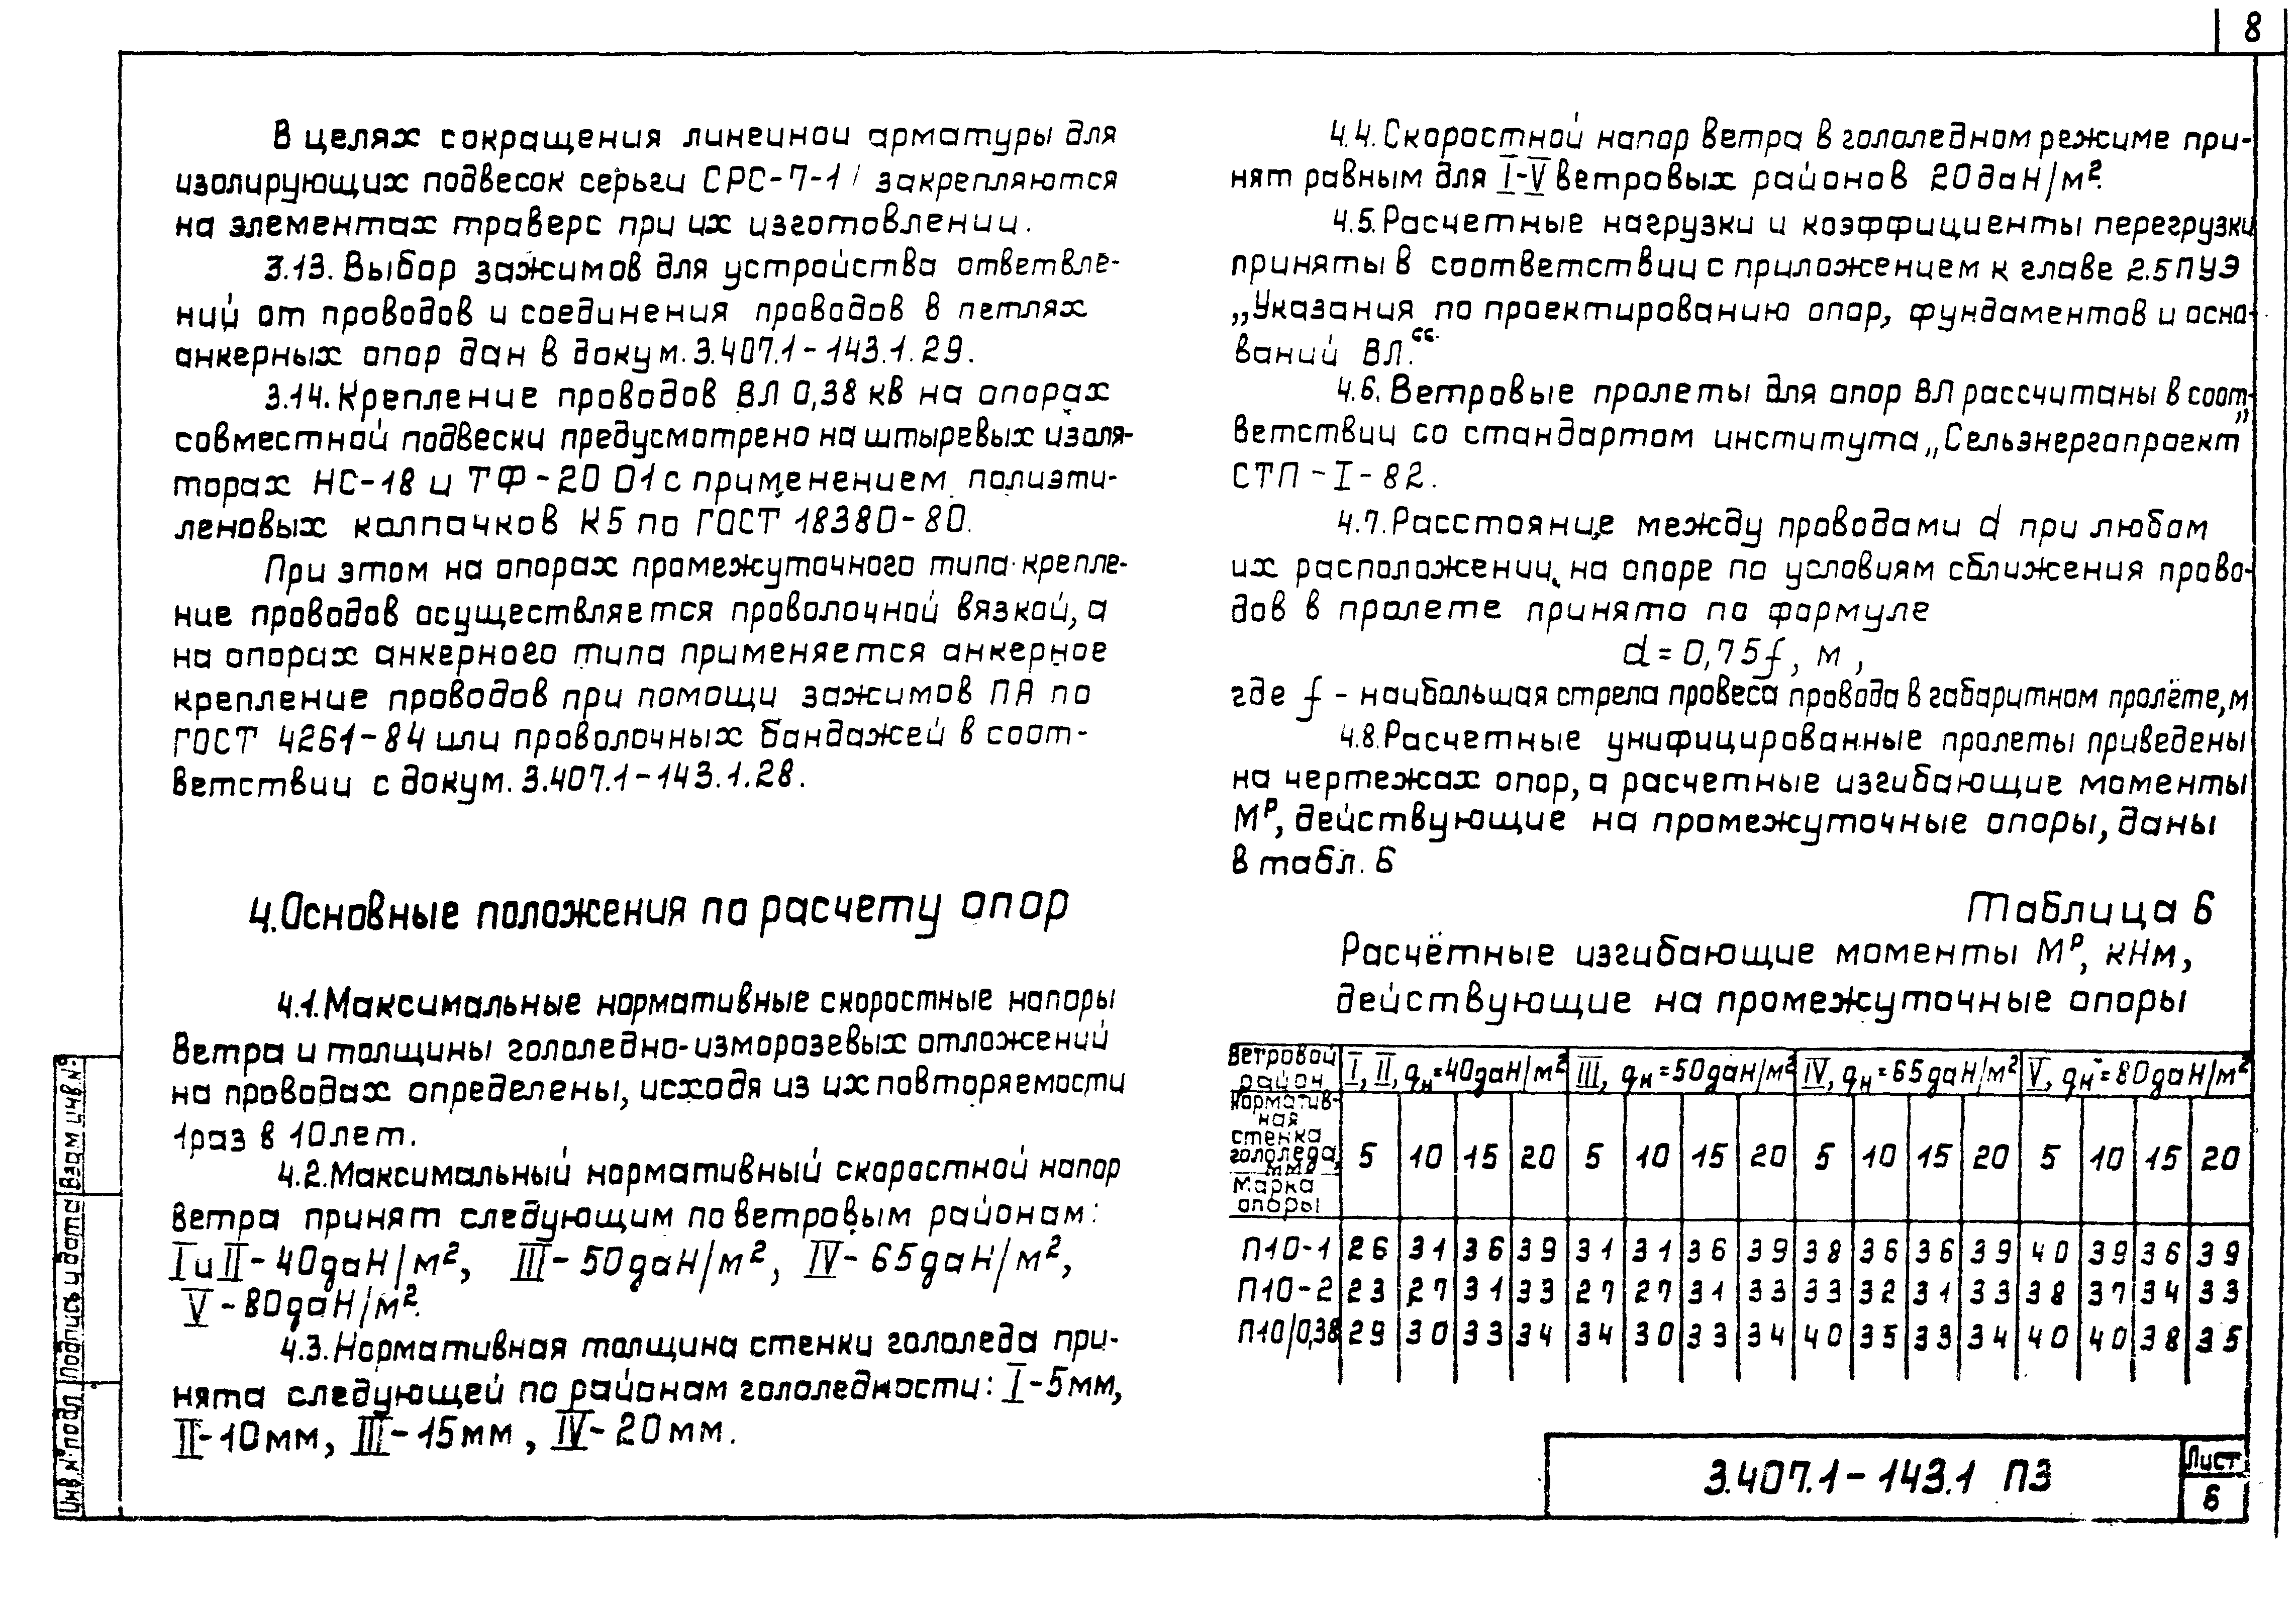 8
В целях сокращения линейной арматуры для
изолирующих подвесок серьги СРС-7-1 закрепляются
на элементах траверс при их изготовлении.
3.13. Выбор зажимов для устройства ответвле-
ний от проводов и соединения проводов в петлях
анкерных опор дан в докум. 3.407.1-143.1.29.
3.14. Крепление проводов ВЛ 0,38 кВ на опорах
совместной подвески предусмотрено на штыревых изоля-
торах НС-18 и ТФ-20 01 с применением полиэти-
леновых колпачков К5 по ГОСТ 18380-80.
При этом на опорах промежуточного типа крепле-
ние проводов осуществляется проволочной вязкой, а
на опорах анкерного типа применяется анкерное
крепление проводов при помощи зажимов ПА по
ГОСТ 4261-84 или проволочных бандажей в соот-
ветствии с докум. 3.407.1-143.1.28.
4. Основные положения по расчету опор
4.1. Максимальные нормативные скоростные напоры
ветра и толщины гололедно-изморозевых отложений
на проводах определены, исходя из их повторяемости
1 раз в 10 лет.
4.2. Максимальный нормативный скоростной напор
ветра принят следующим по ветровым районам:
I и II - 40 даН/м², III - 50 даН/м², IV - 65 даН/м²,
V - 80 даН/м².
4.3. Нормативная толщина стенки гололеда при-
нята следующей по районам гололедности: I - 5 мм,
II - 10 мм, III - 15 мм, IV - 20 мм.
4.4. Скоростной напор ветра в гололедном режиме при-
нят равным для I-V ветровых районов 20 даН/м².
4.5. Расчетные нагрузки и коэффициенты перегрузки
приняты в соответствии с приложением к главе 2.5 ПУЭ
„Указания по проектированию опор, фундаментов и осно-
ваний ВЛ.“
4.6. Ветровые пролеты для опор ВЛ рассчитаны в соот-
ветствии со стандартом института „Сельэнергопроект"
СТП-I-82.
4.7. Расстояние между проводами d при любом
их расположении на опоре по условиям сближения прово-
дов в пролете принято по формуле
d = 0,75f, м,
где f - наибольшая стрела провеса провода в габаритном пролёте, м
4.8. Расчетные унифицированные пролеты приведены
на чертежах опор, а расчетные изгибающие моменты
Мᵖ, действующие на промежуточные опоры, даны
в табл. 6
Таблица 6
Расчётные изгибающие моменты Мᵖ, кНм,
действующие на промежуточные опоры
Ветровой район I, II, qн=40 даН/м² III, qн=50 даН/м² IV, qн=65 даН/м² V, qн=80 даН/м²
Норматив-
ная
стенка
гололеда,
мм 5 10 15 20 5 10 15 20 5 10 15 20 5 10 15 20
Марка
опоры
П10-1 26 31 36 39 31 31 36 39 38 36 36 39 40 39 36 39
П10-2 23 27 31 33 27 27 31 33 33 32 31 33 38 37 34 33
П10/0,38 29 30 33 34 34 30 33 34 40 35 33 34 40 40 38 35
3.407.1-143.1 ПЗ
Лист
6
Инв. № подл. Подпись и дата Взам инв. №